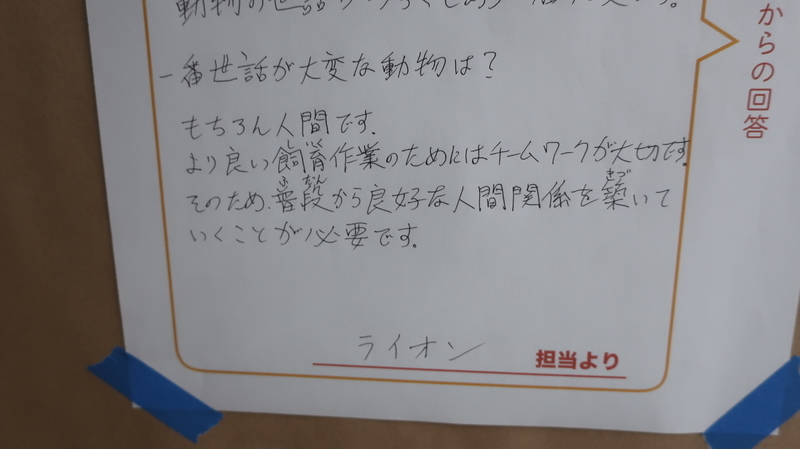 動物の世話
一番世話が大変な動物は?
もちろん人間です.
より良い飼育作業のためにはチームワークが大切です.
そのため、普段から良好な人間関係を築いて
いくことが必要です.
ライオン 担当より
からの回答